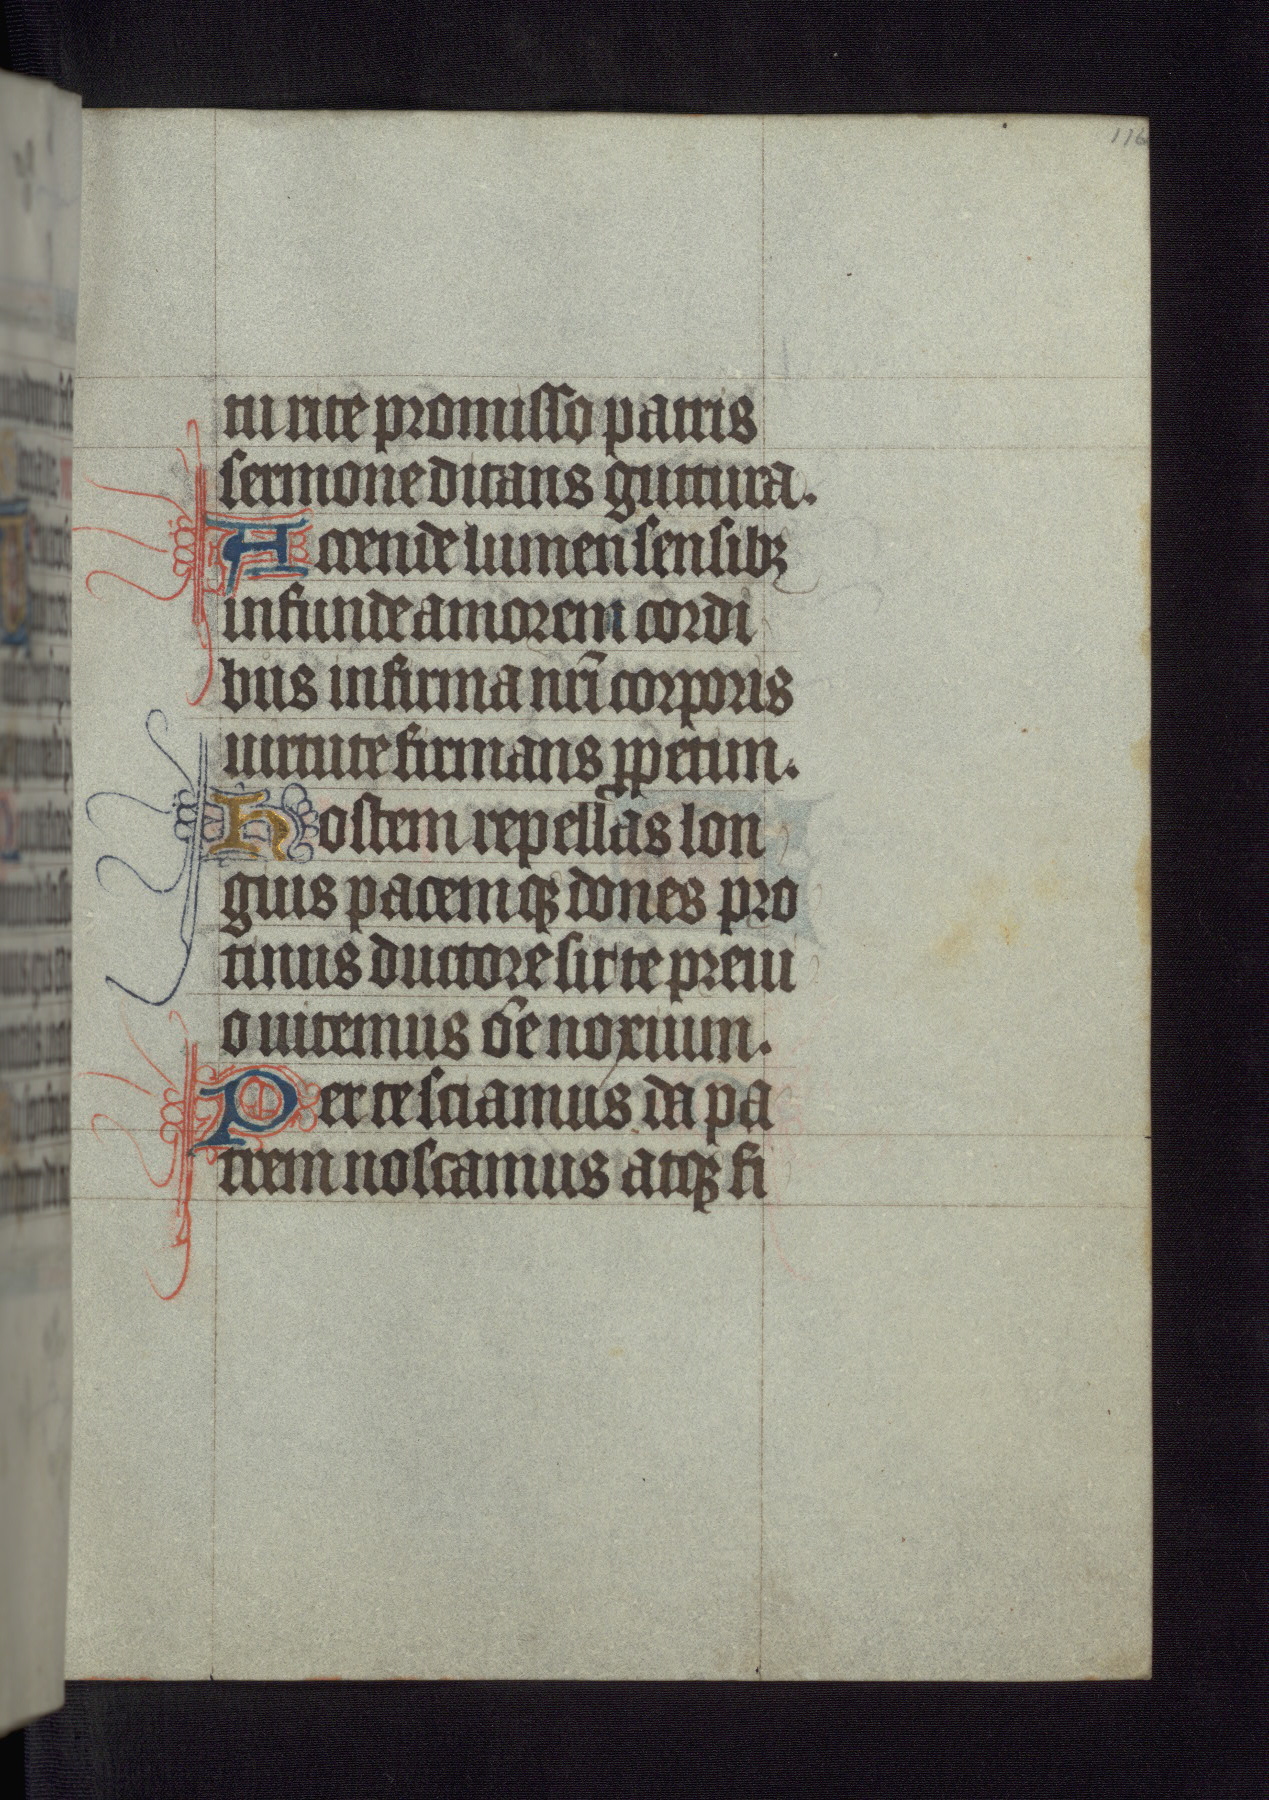 116
tu rite promisso patris
sermone ditans guttura.
Accende lumen sensibꝫ
infunde amorem cordi
bus infirma nr̄i corporis
uirtute firmans ꝑpetim.
Hostem repellas lon
gius pacemqꝫ dones pro
tinus ductore sic te preui
o uitemus om̄e noxium.
Per te sciamus da pa
trem noscamus atqꝫ fi